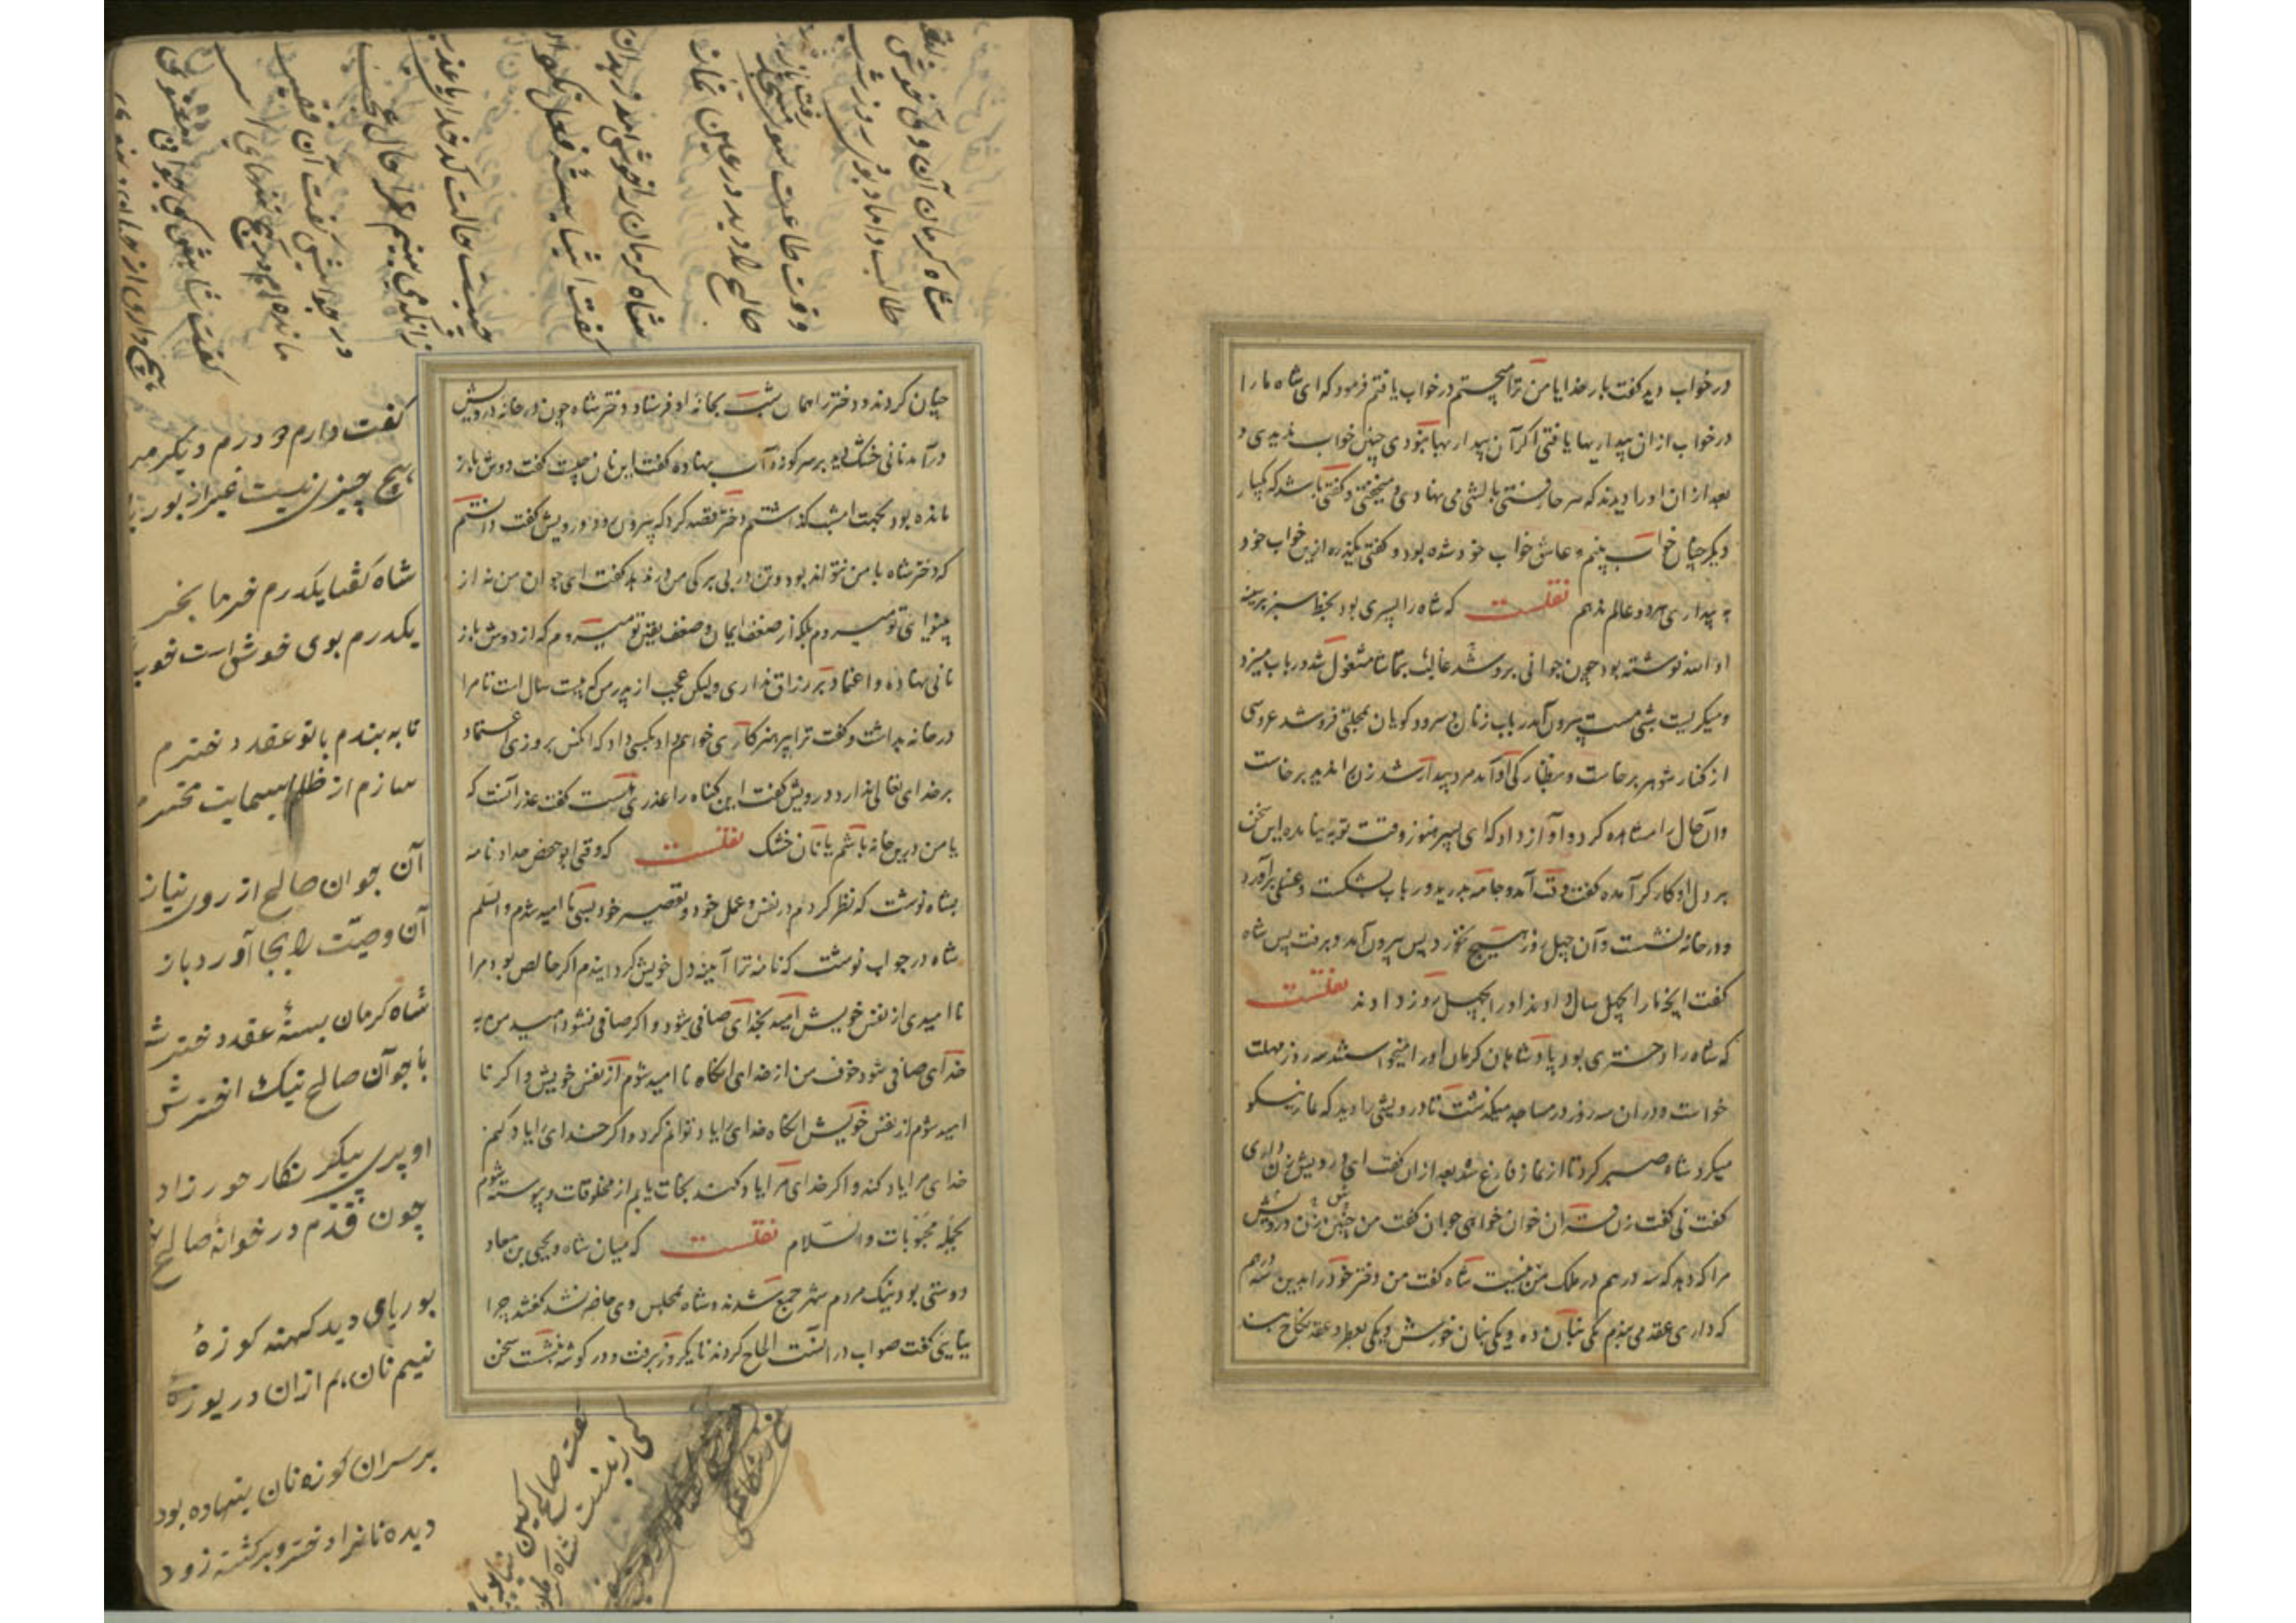 در خواب دید گفت بار خدایا من ترا میجستم در خواب یافتم فرمود که ای شاه ما را
در خواب از ان بیداریها یافتی اگر آن بیداریها نبودی چنین خواب ندیدی و
بعد از ان او را دیدند که هر جا رفتی بالشی می نهادی و میخفتی و گفتی باشد که یکبار
دیگر چنان خواب بینم عاشق خواب خود شده بود و گفتی یکذره ازین خواب خود
به بیداری همه عالم ندهم نقلست که شاه را پسری بود بخط سبز بر سینه
او الله نوشته بود چون جوانی برو شد غالب بتماشا مشغول شد و رباب میزد
و میگریست شبی مست بیرون آمد رباب زنان و سرود گویان بمحلتی فرو شد عروسی
از کنار شوهر برخاست و بنظاره او آمد مرد بیدار شد زن را ندید برخاست
و آن حال را مشاهده کرد و آواز داد که ای پسر هنوز وقت توبه نیامده این سخن
بر دل او کارگر آمده گفت وقت آمد و جامه بدرید و رباب بشکست و غسلی برآورد
و در خانه نشست و آن چهل روز هیچ نخورد پس بیرون آمد و برفت پس شاه
گفت انچه ما را بچهل سال دادند او را بچهل روز دادند نقلست
که شاه را دختری بود پادشاهان کرمان او را میخواستند سه روز مهلت
خواست و در ان سه روز در مساجد میگذشت تا درویشی را دید که نماز نیکو
میکرد شاه صبر کرد تا از نماز فارغ شد بعد از ان گفت ای درویش زن داری
گفت نی گفت زن قران خوان خواهی جوان گفت من چنین زن درویش
مرا که دهد که سه درهم در ملک من نیست شاه گفت من دختر خود را بدین سه درهم
که داری عقد می بندم یکی بنان ده و یکی بنان خورش و یکی بعطر و عقد نکاح بست
چنان کردند و دختر را همان شب بخانه او فرستاد و دختر شاه چون در خانه درویش
درآمد نانی خشک دید بر سر کوزه آب نهاده گفت این نان چیست گفت دوش باز
مانده بود بجهت امشب گذاشتم دختر قصد کرد که بیرون رود درویش گفت دانستم
که دختر شاه با من نتواند بود و تن در بی برگی من ندهد گفت ای جوان من نه از
بینوایی تو میروم بلکه از ضعف ایمان و ضعف یقین تو میروم که از دوش باز
نانی نهاده و اعتماد بر رزاق نداری ولیکن عجب از پدر من که بیست سال است تا مرا
در خانه بداشت و گفت ترا بپرهیزکاری خواهم داد بکسی داد که آنکس بروزی اعتماد
بر خدای تعالی ندارد درویش گفت این گناه را عذری هست گفت عذر آنست که
یا من درین خانه باشم یا نان خشک نقلست که وقتی ابوحفص حداد نامه
بشاه نوشت که نظر کردم در نفس و عمل خود و تقصیر خود بسی نا امید شدم والسلم
شاه در جواب نوشت که نامه ترا آیینه دل خویش گردانیدم اگر خالص بود مرا
نا امیدی از نفس خویش امید بخدای صافی شود و اگر صافی نشود امید من به
خدای صافی شود خوف من از خدای آنگاه نا امید شوم از نفس خویش و اگر نا
امید شوم از نفس خویش آنگاه خدای را یاد توانم کرد و اگر خدای را یاد کنم
خدای مرا یاد کند و اگر خدای مرا یاد کند نجات یابم از مخلوقات و پیوسته شوم
بجمله محبوبات والسلام نقلست که میان شاه و یحیی بن معاد
دوستی بود نیک مردم شهر جمع شدند و شاه بمجلس وی حاضر نشد گفتند چرا
نیایی گفت صواب در آنست الحاح کردند تا یکروز برفت و در گوشه بنشست سخن
شاه کرمان آن ولی
طالب داماد بودی روز و شب
وقت طاعت سوی مسجد
صالح را دید در عین نماز
شاه کرمان را خوش آمد
گفت
چیست حالت کدخدا
زانکه می بینم ترا حال عجب
در جوابش گفت آن
مانده ام
گفت شاهش کی جوان
هیچ داری از
گفت دارم ۳ درم دیگر
هیچ چیزی نیست غیر از بوریا
شاه گفتا یکدرم خرما بخر
یکدرم بوی خوش است خوب
تا به بندم با تو عقد دخترم
سازم از ظل حمایت محترم
آن جوان صالح از روی نیاز
آن وصیّت را بجا آورد باز
شاه کرمان بسته عقد دخترش
با جوان صالح نیک اخترش
او پری پیکر نگار حور زاد
چون قدم در خوانه صالح
بوریای دید کهنه کوزهٔ
نیم نان هم از ان دریوزهٔ
بر سران کوزه نان بنهاده بود
دیده نانرا دختر و برگشته زود
گفت صالح